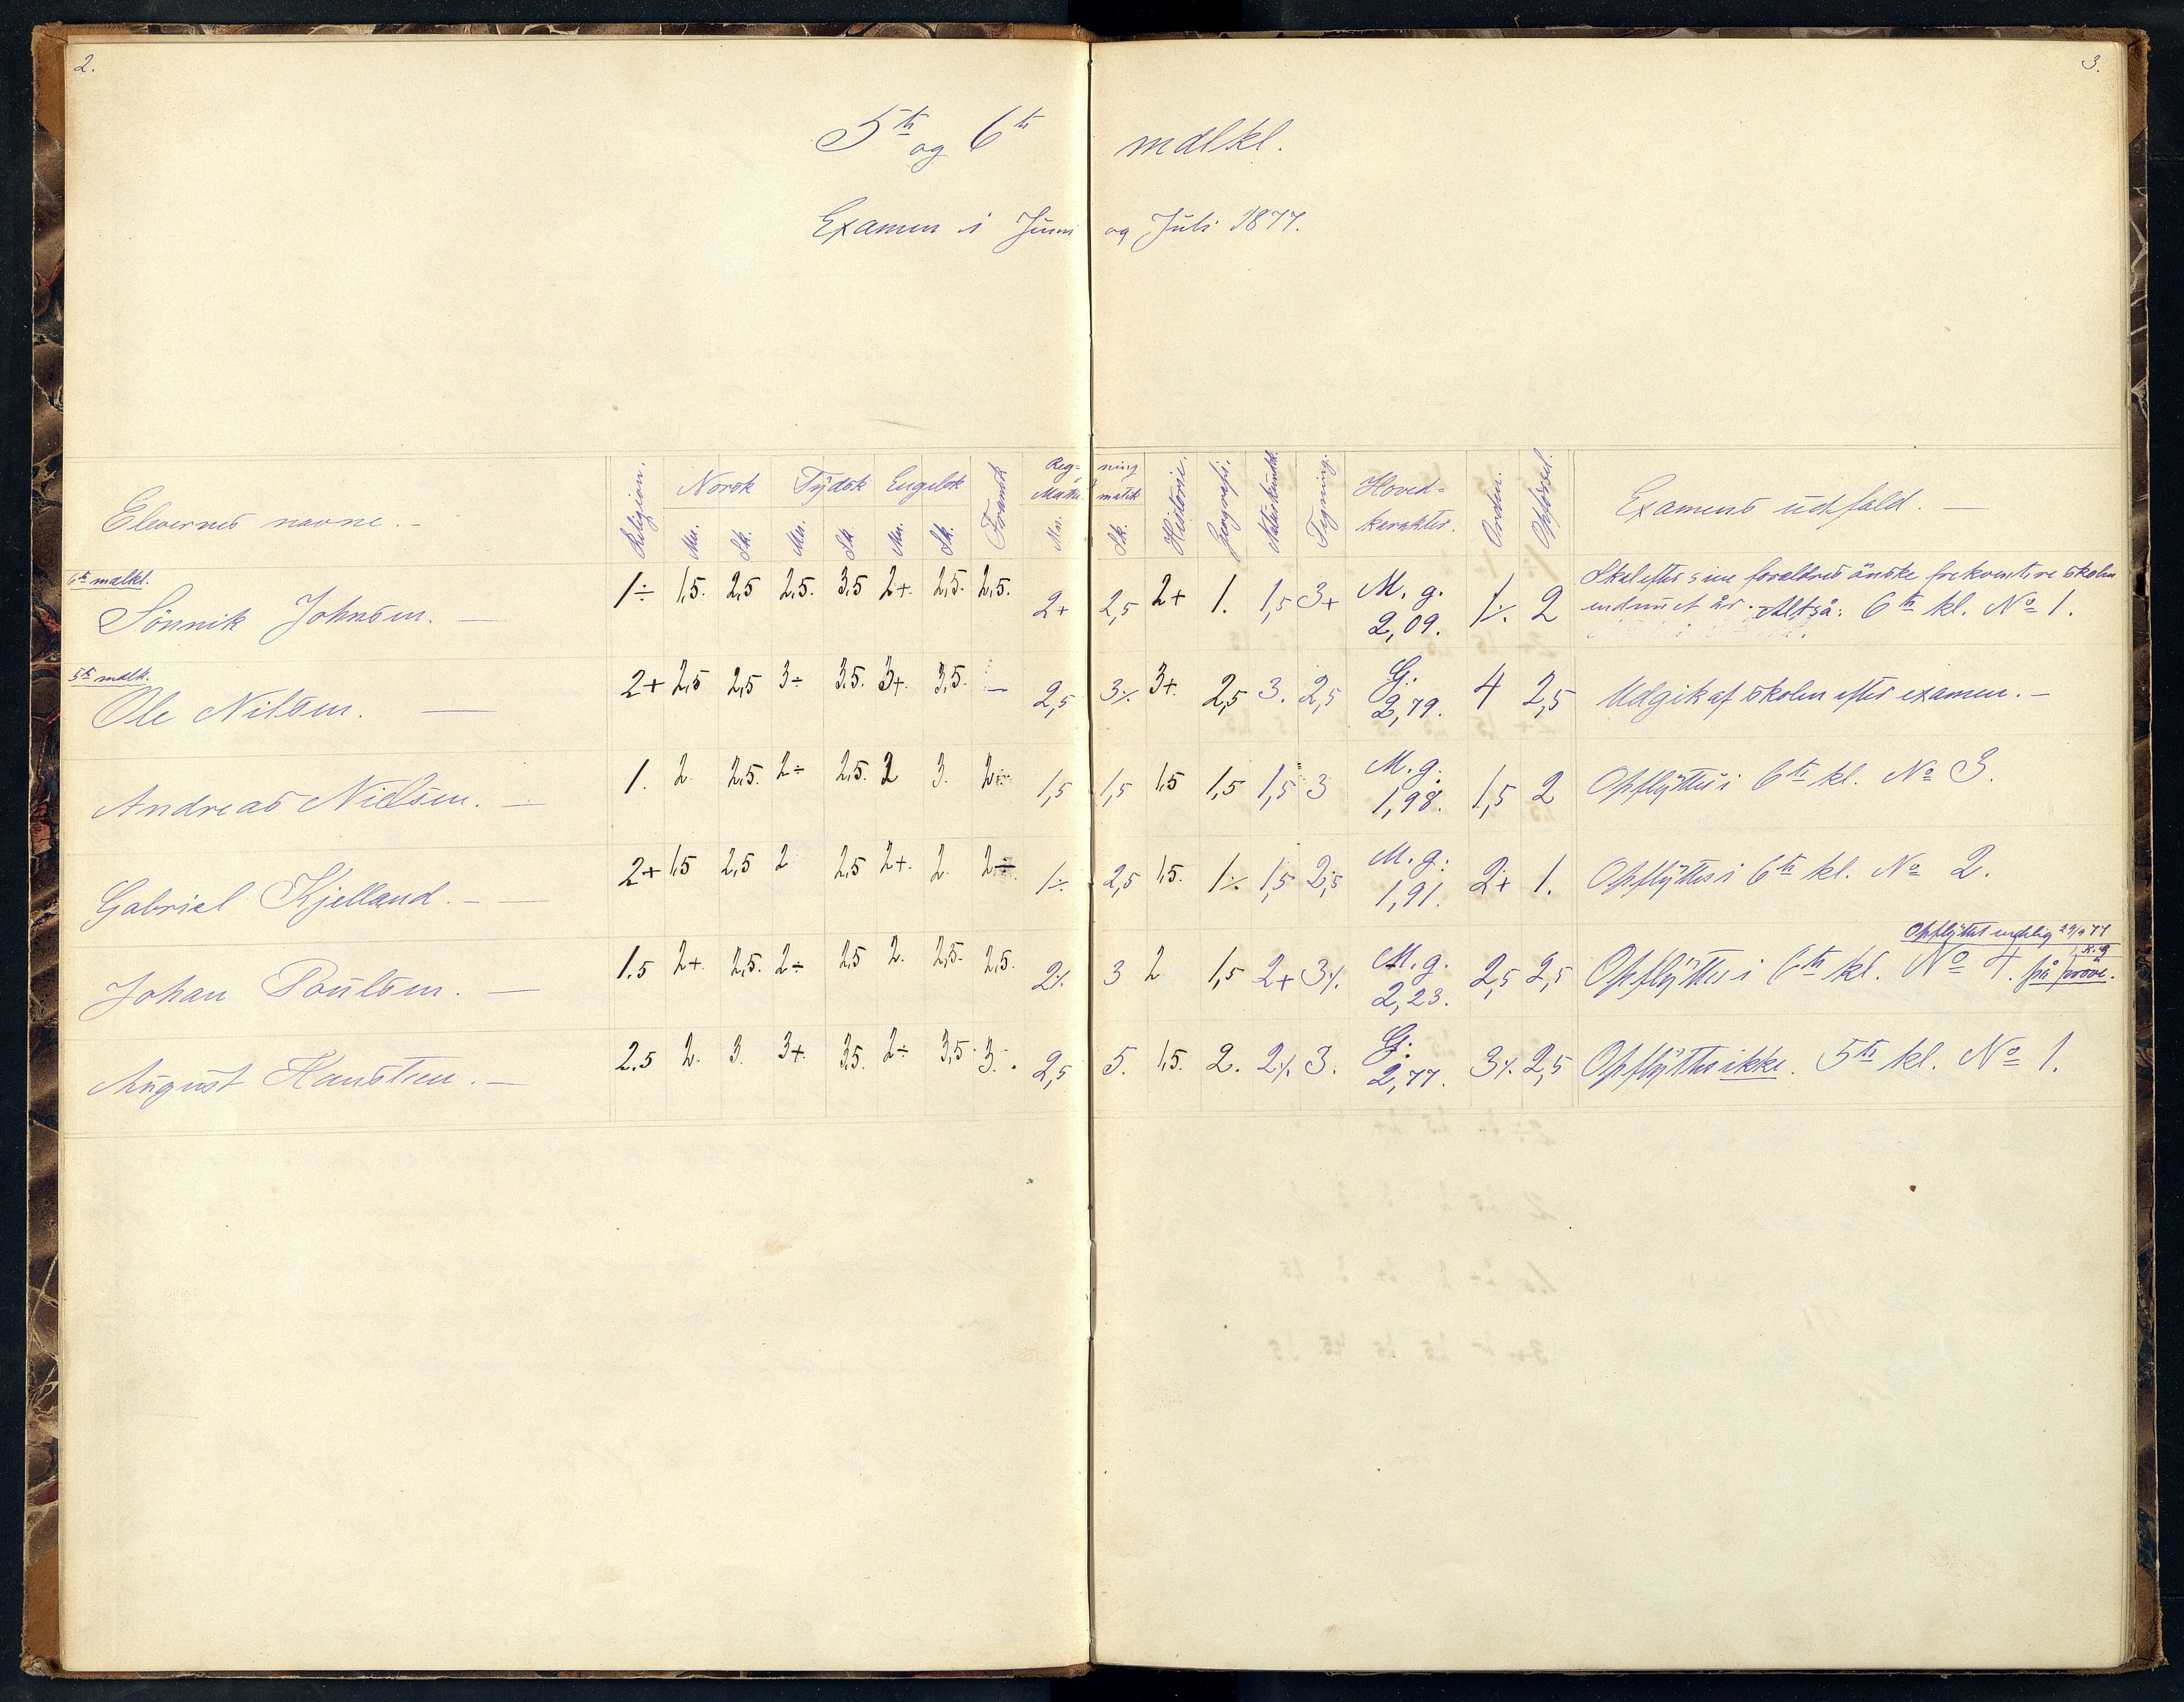 2.
3.
5te og 6te mdlkl.
Examen i Juni og Juli 1877.
Elevernes navne. - Religion. Norsk Tÿdsk Engelsk Fransk Reg= ning Mathe= matik Historie. Geografi. Naturkundsk. Tegning. Hoved= karakter. Orden. Opförsel. Examens udfald. —
Mn. Sk. Mn. Sk. Mn. Sk. Mn. Sk.
6te mdlkl.
Sönnik Johnsen. — 1÷ 1,5. 2,5 2,5. 3,5 2+. 2,5. 2,5. 2+ 2,5 2+ 1. 1,5 3+ M. g. 2,09. 1÷. 2 Skal efter sine forældres önske frekventere skolen
endnu et år. Altså: 6te kl. No 1.
5te mdlk.
Ole Nilsen. — 2+ 2,5 2,5 3÷ 3.5. 3+. 3,5. — 2,5 3÷ 3+. 2,5 3. 2,5 G. 2,79. 4 2,5 Udgik af skolen efter examen. —
Andreas Nielsen. — 1. 2. 2,5. 2÷ 2,5. 2 3. 2÷ 1,5 1,5 1,5 1,5 1,5 3 M. g. 1,98. 1,5 2 Opflÿttes i 6te kl. No 3.
Gabriel Kjelland. - — 2+ 1,5 2,5 2 2,5 2+. 2. 2÷. 1÷. 2,5 1,5. 1÷ 1,5 2,5 M. g. 1,91. 2+ 1. Opflÿttes i 6te kl. No 2.
Opflÿttet endelig 29/9 77
Johan Poulsen. — 1.5 2+. 2,5. 2÷ 2,5 2. 2,5. 2,5. 2÷ 3 2 1,5 2+ 3÷. M. g. 2,23. 2,5 2,5 Opflÿttes i 6te kl. No 4. på pröve.
August Hansteen. — 2.5 2. 3. 3+. 3,5. 2÷ 3,5. 3. 2,5 5. 1,5. 2. 2÷. 3. G. 2,77. 3÷. 2,5 Opflÿttes ikke. 5te kl. No 1.